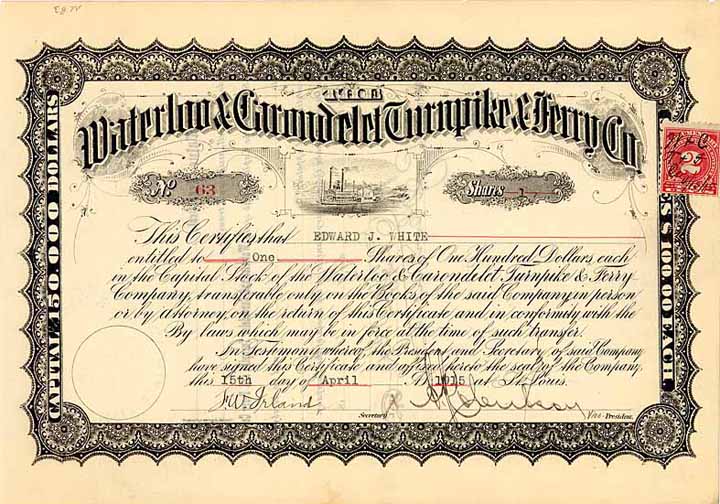 THE
Waterloo & Carondelet Turnpike & Ferry Co.
No 63
Shares 1
CAPITAL 150.000 DOLLARS
ES $100.00 EACH
This Certifies that EDWARD J. WHITE
entitled to One Shares of One Hundred Dollars each
in the Capital Stock of the Waterloo & Carondelet Turnpike & Ferry
Company, transferable only on the Books of the said Company in person
or by Attorney, on the return of this Certificate and in conformity with the
By laws which may be in force at the time of such transfer.
In Testimony whereof, the President and Secretary of said Company
have signed this Certificate and affixed hereto the seal of the Company
this 15th day of April D 1915 at St. Louis.
Secretary
Vice-President.
2